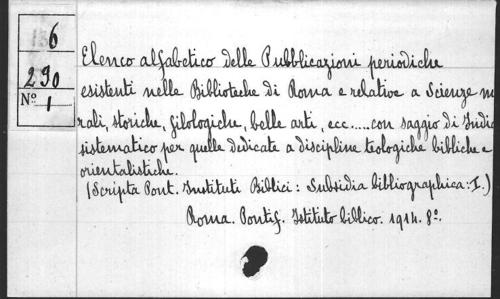 6
290
Nº 1
Elenco alfabetico delle Pubblicazioni periodiche
esistenti nelle Biblioteche di Roma e relative a Scienze mo
rali, storiche, filologiche, belle arti, ecc.....con saggio di Indice
sistematico per quelle dedicate a discipline teologiche bibliche e
orientalistiche.
(Scripta Pont. Instituti Biblici: Subsidia bibliographica: I.)
Roma. Pontif. Istituto biblico. 1914. 8º.